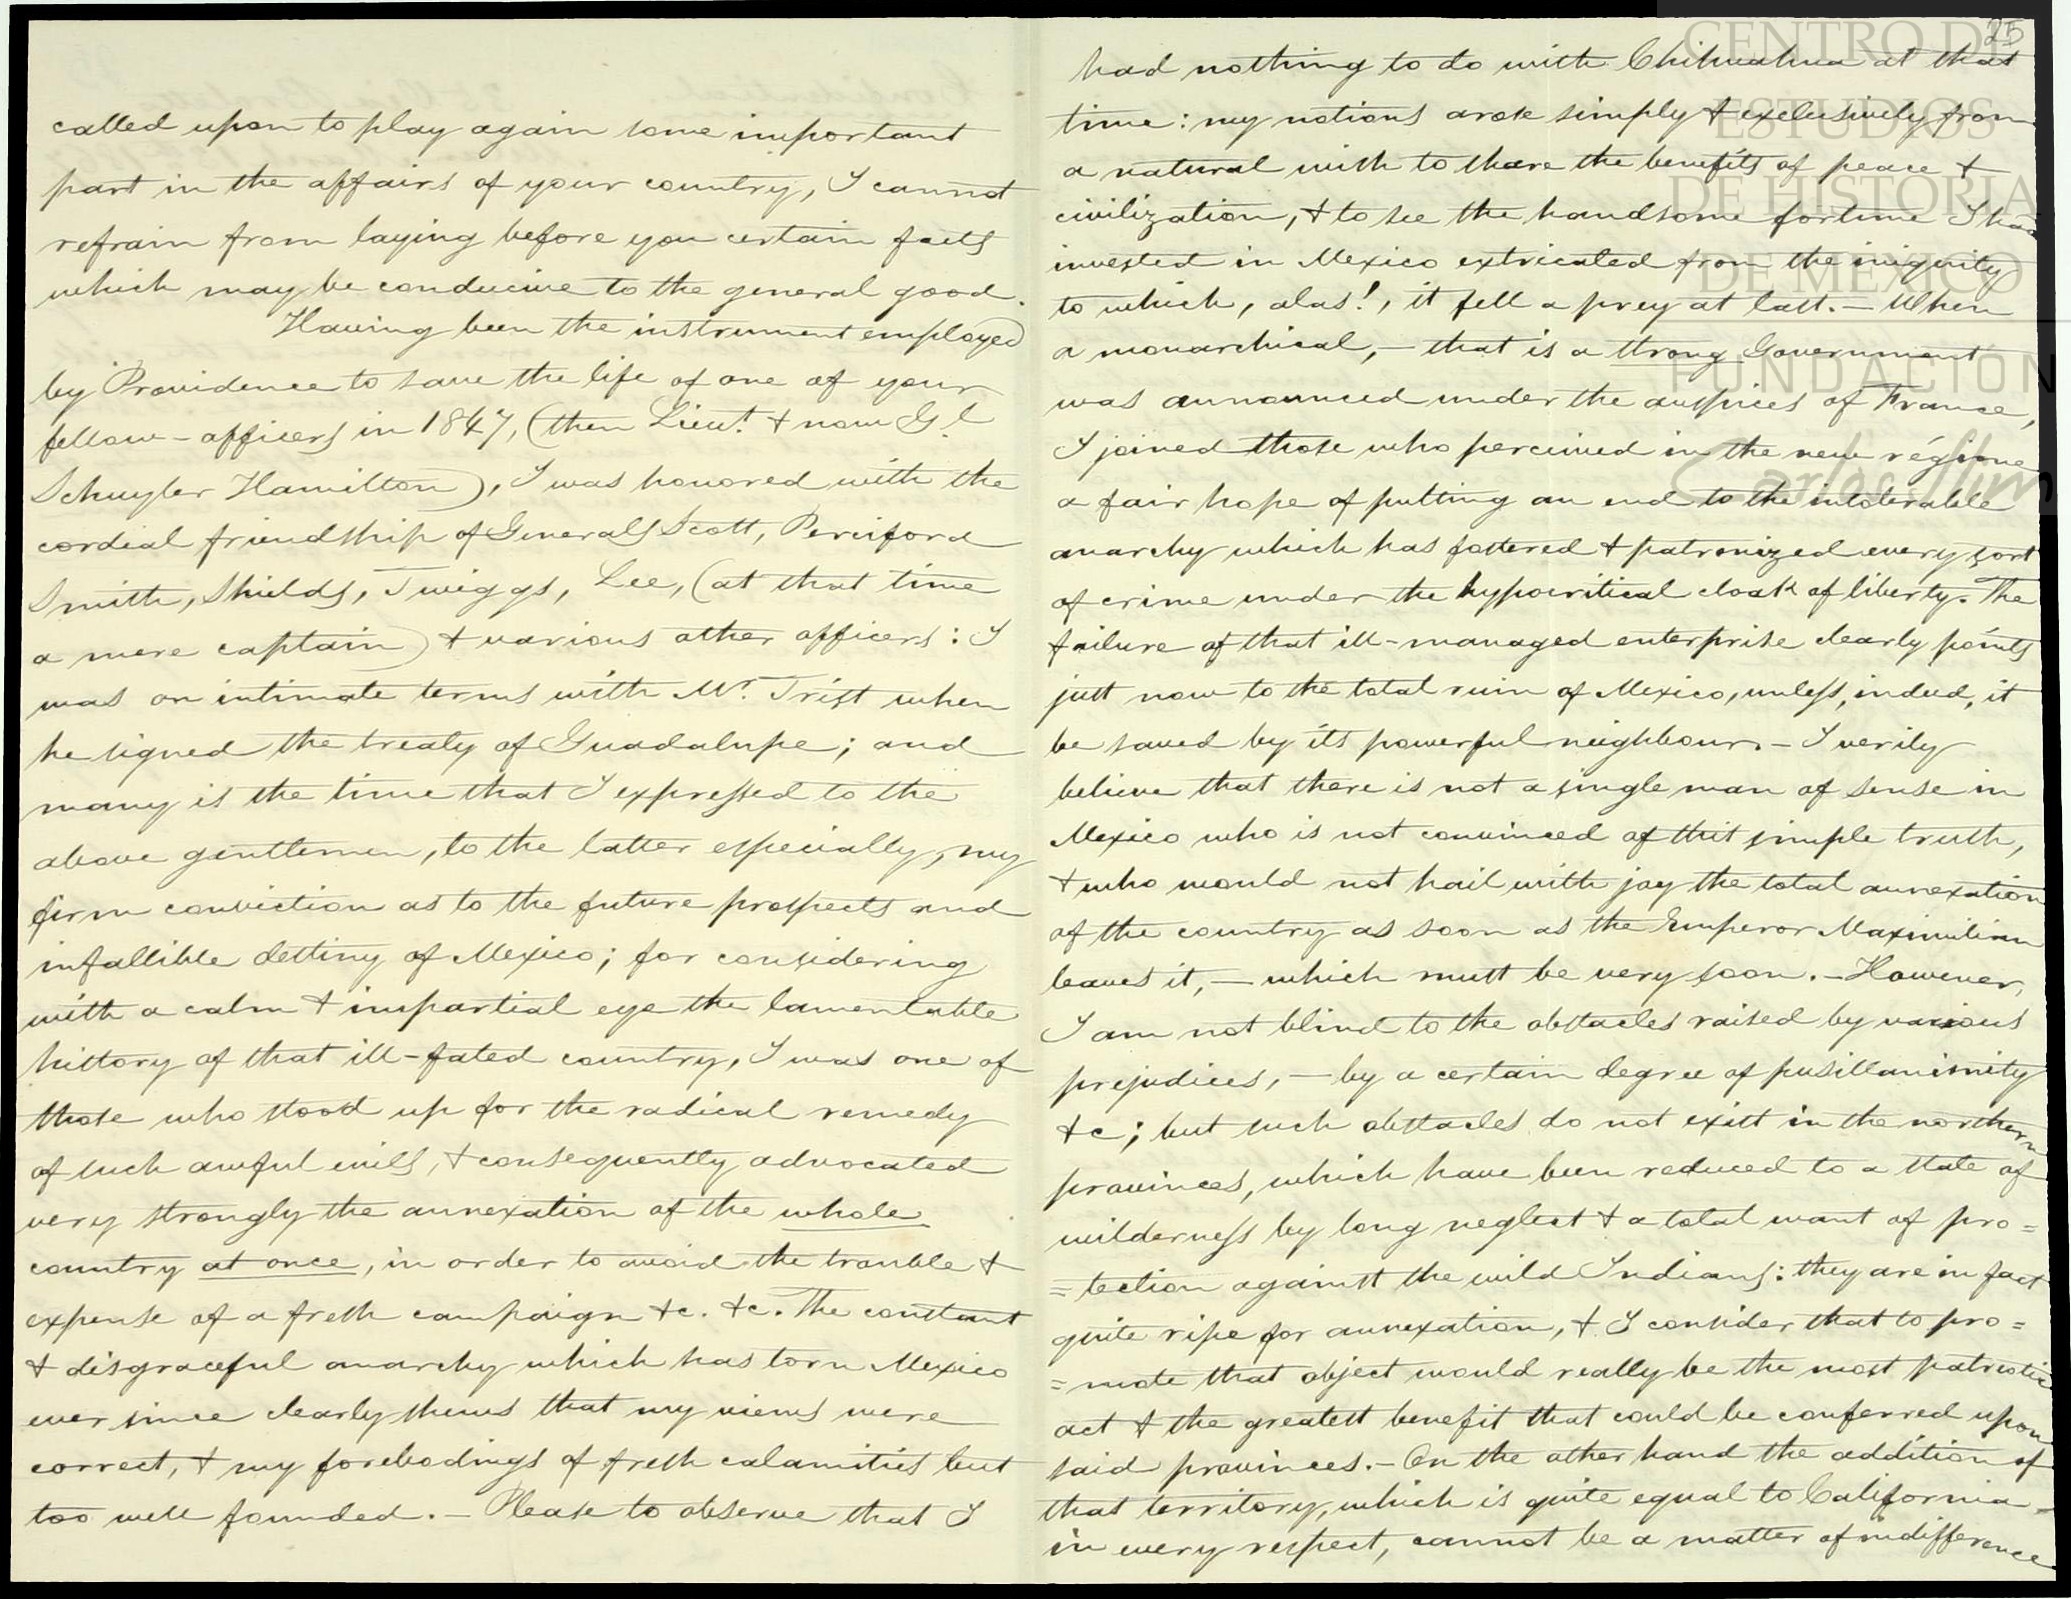 called upon to play again some important
part in the affairs of your country, I cannot
refrain from laying before you certain facts
which may be conducive to the general good.
Having been the instrument employed
by Providence to save the life of one of your
fellow-officers in 1847, (then Lieut. & now Gl.
Schuyler Hamilton), I was honored with the
cordial friendship of Generals Scott, Perciford
Smith, Shields, Twiggs, Lee, (at that time
a mere captain) & various other officers: I
was on intimate terms with Mr. Trist when
he signed the treaty of Guadalupe; and
many is the time that I expressed to the
above gentlemen, to the latter especially, my
firm conviction as to the future prospects and
infallible destiny of Mexico; for considering
with a calm & impartial eye the lamentable
history of that ill-fated country, I was one of
those who stood up for the radical remedy
of such awful evils, & consequently advocated
very strongly the annexation of the whole
country at once, in order to avoid the trouble &
expense of a fresh campaign &c. &c. The constant
& disgraceful anarchy which has torn Mexico
ever since clearly shews that my views were
correct, & my forebodings of fresh calamities but
too well founded. — Please to observe that I
25
had nothing to do with Chihuahua at that
time: my notions arose simply & exclusively from
a natural wish to share the benefits of peace &
civilization, & to see the handsome fortune I had
invested in Mexico extricated from the iniquity
to which, alas!, it fell a prey at last. — When
a monarchical, — that is a strong Government
was announced under the auspices of France,
I joined those who perceived in the new régime
a fair hope of putting an end to the intolerable
anarchy which has fostered & patronized every sort
of crime under the hypocritical cloak of liberty. The
failure of that ill-managed enterprise clearly points
just now to the total ruin of Mexico, unless, indeed, it
be saved by its powerful neighbour. — I verily
believe that there is not a single man of sense in
Mexico who is not convinced of this simple truth,
& who would not hail with joy the total annexation
of the country as soon as the Emperor Maximilian
leaves it, — which must be very soon. — However,
I am not blind to the obstacles raised by various
prejudices, — by a certain degree of pusillanimity
&c; but such obstacles do not exist in the northern
provinces, which have been reduced to a state of
wilderness by long neglect & a total want of pro=
=tection against the wild Indians: they are in fact
quite ripe for annexation, & I consider that to pro=
=mote that object would really be the most patriotic
act & the greatest benefit that could be conferred upon
said provinces. — On the other hand the addition of
that territory, which is quite equal to California
in every respect, cannot be a matter of indifference
CENTRO DE
ESTUDIOS
DE HISTORIA
DE MEXICO
FUNDACIÓN
Carlos Slim